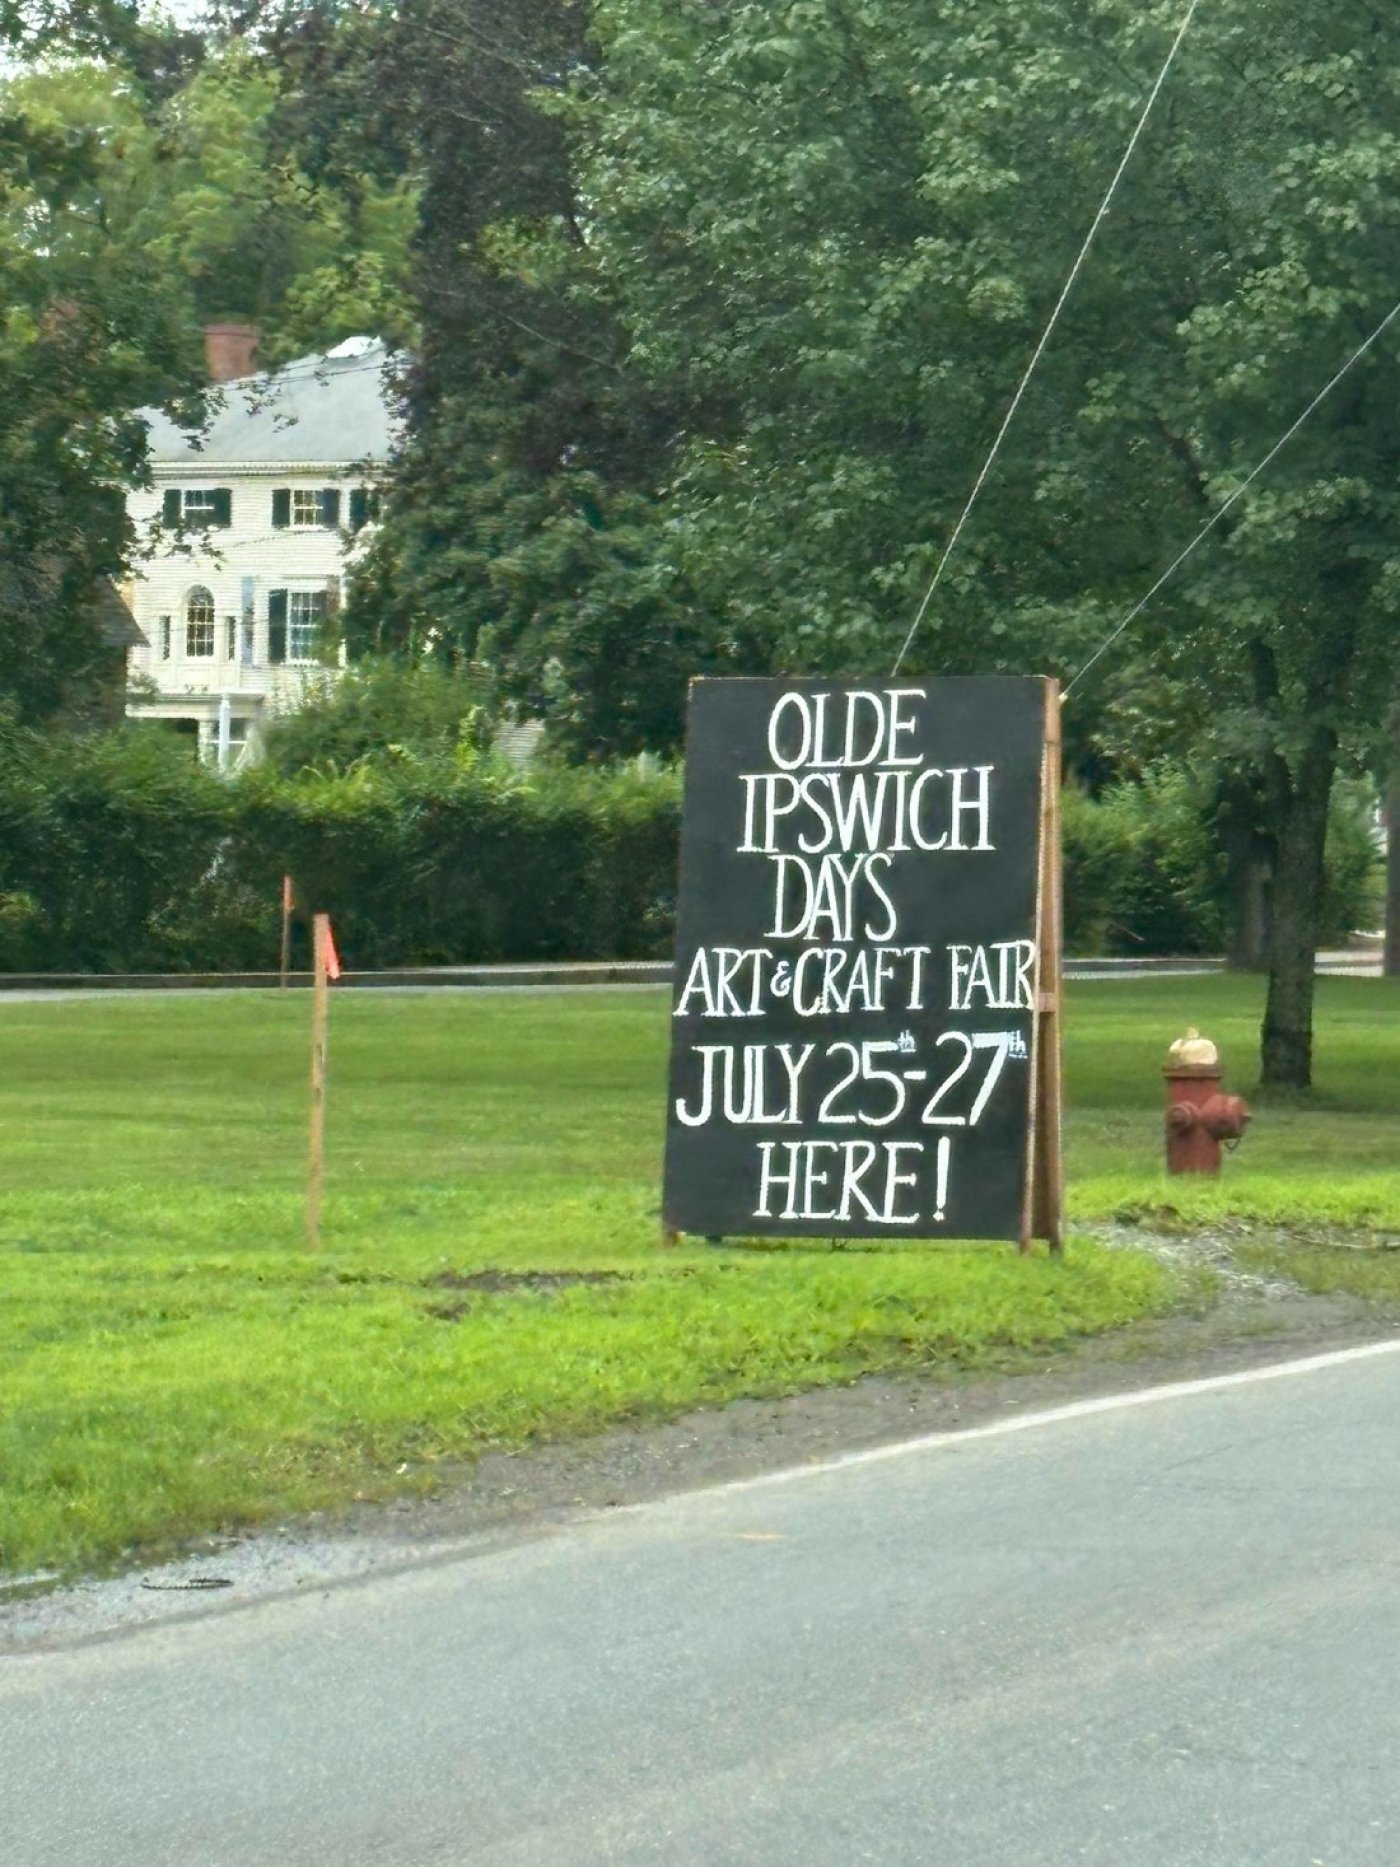 OLDE
IPSWICH
DAYS
ART & CRAFT FAIR
JULY 25th-27th
HERE!